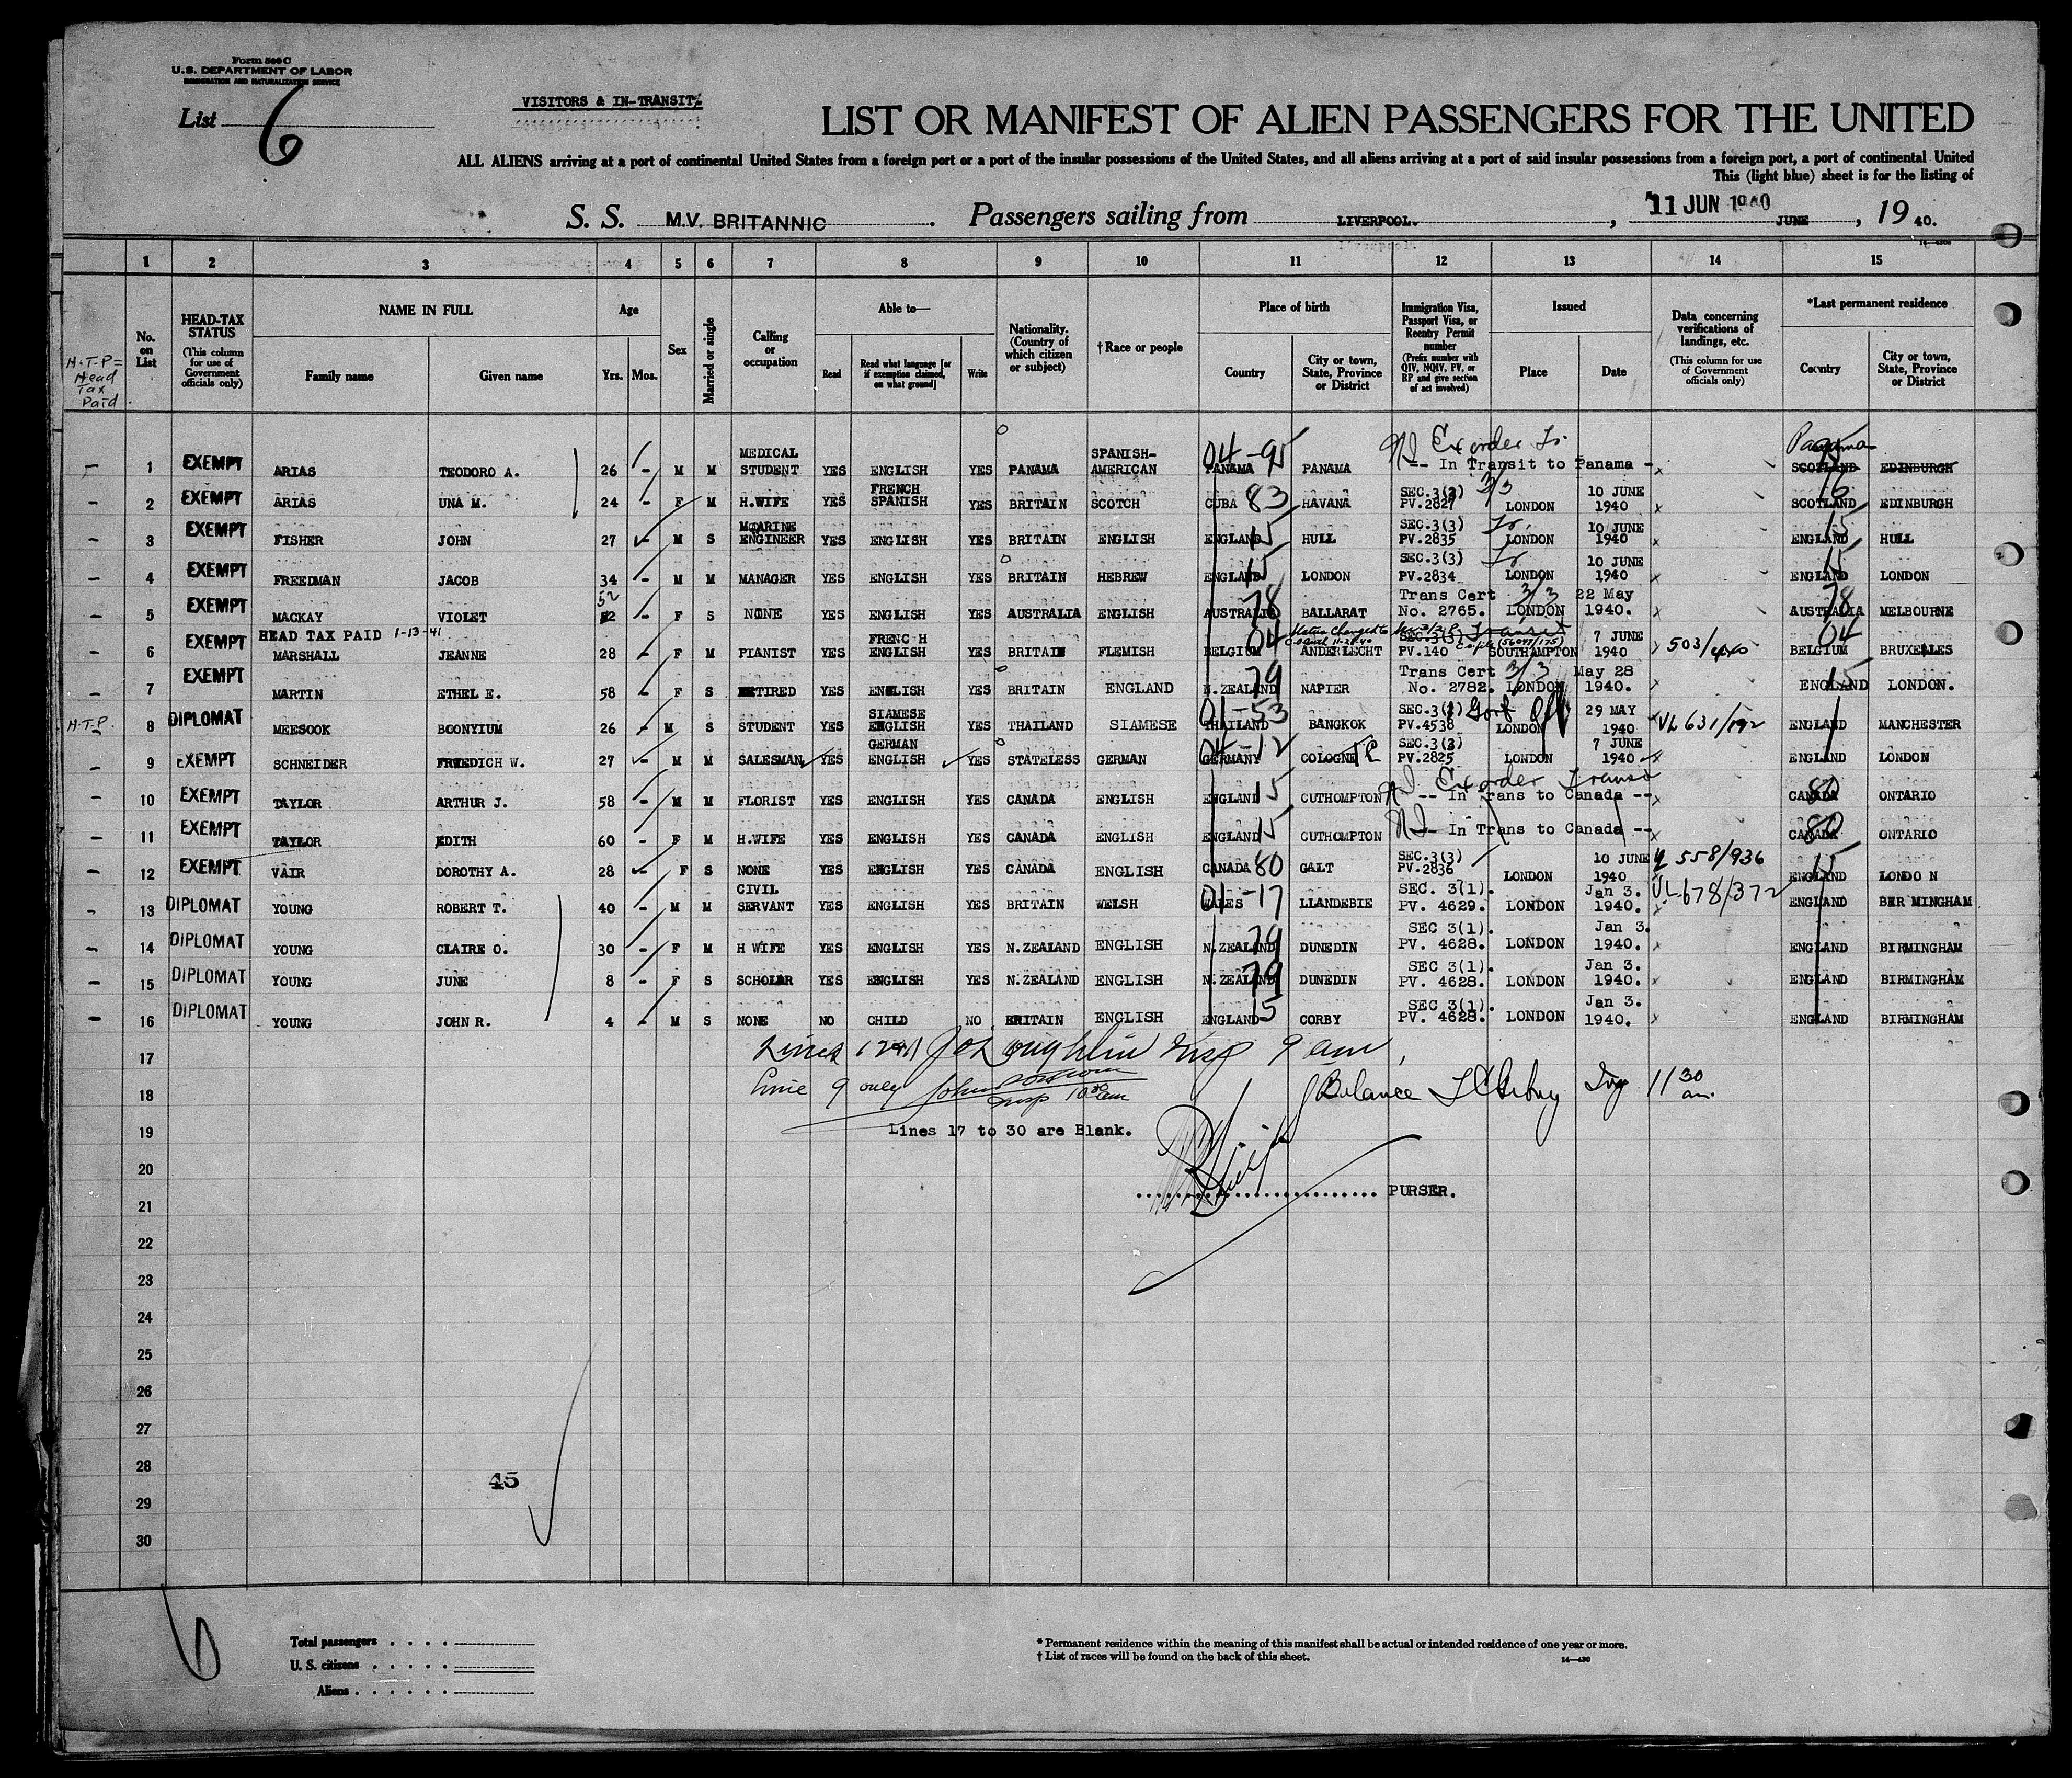 Form 500 C
U.S. DEPARTMENT OF LABOR
IMMIGRATION AND NATURALIZATION SERVICE
List 6
VISITORS & IN-TRANSIT.
LIST OR MANIFEST OF ALIEN PASSENGERS FOR THE UNITED
ALL ALIENS arriving at a port of continental United States from a foreign port or a port of the insular possessions of the United States, and all aliens arriving at a port of said insular possessions from a foreign port, a port of continental United
This (light blue) sheet is for the listing of
S. S. M.V. BRITANNIC. Passengers sailing from LIVERPOOL., 11 JUN 1940 JUNE, 19 40.
1 2 3 4 5 6 7 8 9 10 11 12 13 14 15
H.T.P = Head Tax Paid
No. on List
HEAD-TAX STATUS (This column for use of Government officials only)
NAME IN FULL
Family name Given name
Age
Yrs. Mos.
Sex
Married or single
Calling or occupation
Able to—
Read Read what language [or if exemption claimed, on what ground] Write
Nationality. (Country of which citizen or subject)
†Race or people
Place of birth
Country City or town, State, Province or District
Immigration Visa, Passport Visa, or Reentry Permit number (Prefix number with QIV, NQIV, PV, or RP and give section of act involved)
Issued
Place Date
Data concerning verifications of landings, etc. (This column for use of Government officials only)
*Last permanent residence
Country City or town, State, Province or District
1 EXEMPT ARIAS TEODORO A. 26 - M M MEDICAL STUDENT YES ENGLISH YES PANAMA SPANISH-AMERICAN 04-95 PANAMA PANAMA -- In Transit to Panama - Panama SCOTLAND EDINBURGH
2 EXEMPT ARIAS UNA M. 24 - F M H.WIFE YES FRENCH SPANISH YES BRITAIN SCOTCH CUBA 83 HAVANA SEC.3(3) PV.2827 3/3 LONDON 10 JUNE 1940 SCOTLAND 16 EDINBURGH
3 EXEMPT FISHER JOHN 27 - M S MARINE ENGINEER YES ENGLISH YES BRITAIN ENGLISH ENGLAND 15 HULL SEC.3(3) PV.2835 Tr. LONDON 10 JUNE 1940 ENGLAND 15 HULL
4 EXEMPT FREEDMAN JACOB 34 - M M MANAGER YES ENGLISH YES BRITAIN HEBREW ENGLAND 15 LONDON SEC.3(3) PV.2834 Tr LONDON 10 JUNE 1940 ENGLAND 15 LONDON
5 EXEMPT MACKAY VIOLET 52 - F S NONE YES ENGLISH YES AUSTRALIA ENGLISH AUSTRALIA 78 BALLARAT Trans Cert No. 2765. 3/3 LONDON 22 May 1940. AUSTRALIA 78 MELBOURNE
HEAD TAX PAID 1-13-41
6 EXEMPT MARSHALL JEANNE 28 - F M PIANIST YES FRENCH ENGLISH YES BRITAIN FLEMISH BELGIUM 04 ANDERLECHT SEC.3(3) PV.140 SOUTHAMPTON 7 JUNE 1940 503/440 BELGIUM 04 BRUXELLES
7 EXEMPT MARTIN ETHEL E. 58 - F S RETIRED YES ENGLISH YES BRITAIN ENGLAND N.ZEALAND 79 NAPIER Trans Cert No. 2782. 3/3 LONDON May 28 1940. ENGLAND 15 LONDON.
H.T.P. 8 DIPLOMAT MEESOOK BOONYIUM 26 - M S STUDENT YES SIAMESE ENGLISH YES THAILAND SIAMESE 01-53 THAILAND BANGKOK PV.4538 LONDON 29 MAY 1940 VL 631/192 ENGLAND MANCHESTER
9 EXEMPT SCHNEIDER FRIEDICH W. 27 - M M SALESMAN YES GERMAN ENGLISH YES STATELESS GERMAN 04-12 GERMANY COLOGNE SEC.3(3) PV.2825 LONDON 7 JUNE 1940 ENGLAND LONDON
10 EXEMPT TAYLOR ARTHUR J. 58 - M M FLORIST YES ENGLISH YES CANADA ENGLISH ENGLAND 15 CUTHOMPTON -- In Trans to Canada -- CANADA 80 ONTARIO
11 EXEMPT TAYLOR EDITH 60 - F M H.WIFE YES ENGLISH YES CANADA ENGLISH ENGLAND 15 CUTHOMPTON -- In Trans to Canada -- CANADA 80 ONTARIO
12 EXEMPT VAIR DOROTHY A. 28 - F S NONE YES ENGLISH YES CANADA ENGLISH CANADA 80 GALT SEC.3(3) PV.2836 LONDON 10 JUNE 1940 558/936 ENGLAND 15 LONDO N
13 DIPLOMAT YOUNG ROBERT T. 40 - M M CIVIL SERVANT YES ENGLISH YES BRITAIN WELSH 01-17 WALES LLANDEBIE SEC. 3(1). PV. 4629. LONDON Jan 3. 1940. VL-678/372 ENGLAND BIRMINGHAM
14 DIPLOMAT YOUNG CLAIRE O. 30 - F M H WIFE YES ENGLISH YES N.ZEALAND ENGLISH N.ZEALAND 79 DUNEDIN SEC 3(1). PV. 4628. LONDON Jan 3. 1940. ENGLAND BIRMINGHAM
15 DIPLOMAT YOUNG JUNE 8 - F S SCHOLAR YES ENGLISH YES N.ZEALAND ENGLISH N.ZEALAND 79 DUNEDIN SEC 3(1). PV. 4628. LONDON Jan 3. 1940. ENGLAND BIRMINGHAM
16 DIPLOMAT YOUNG JOHN R. 4 - M S NONE NO CHILD NO BRITAIN ENGLISH ENGLAND 15 CORBY SEC 3(1). PV. 4628. LONDON Jan 3. 1940. ENGLAND BIRMINGHAM
17 Lines Insp 9 am
18 Line 9 only Insp 10 30 am Balance 11 30 am.
19 Lines 17 to 30 are Blank.
20
PURSER.
21
22
23
24
25
26
27
28
45
29
30
6
Total passengers
U. S. citizens
Aliens
* Permanent residence within the meaning of this manifest shall be actual or intended residence of one year or more.
† List of races will be found on the back of this sheet.
14—430